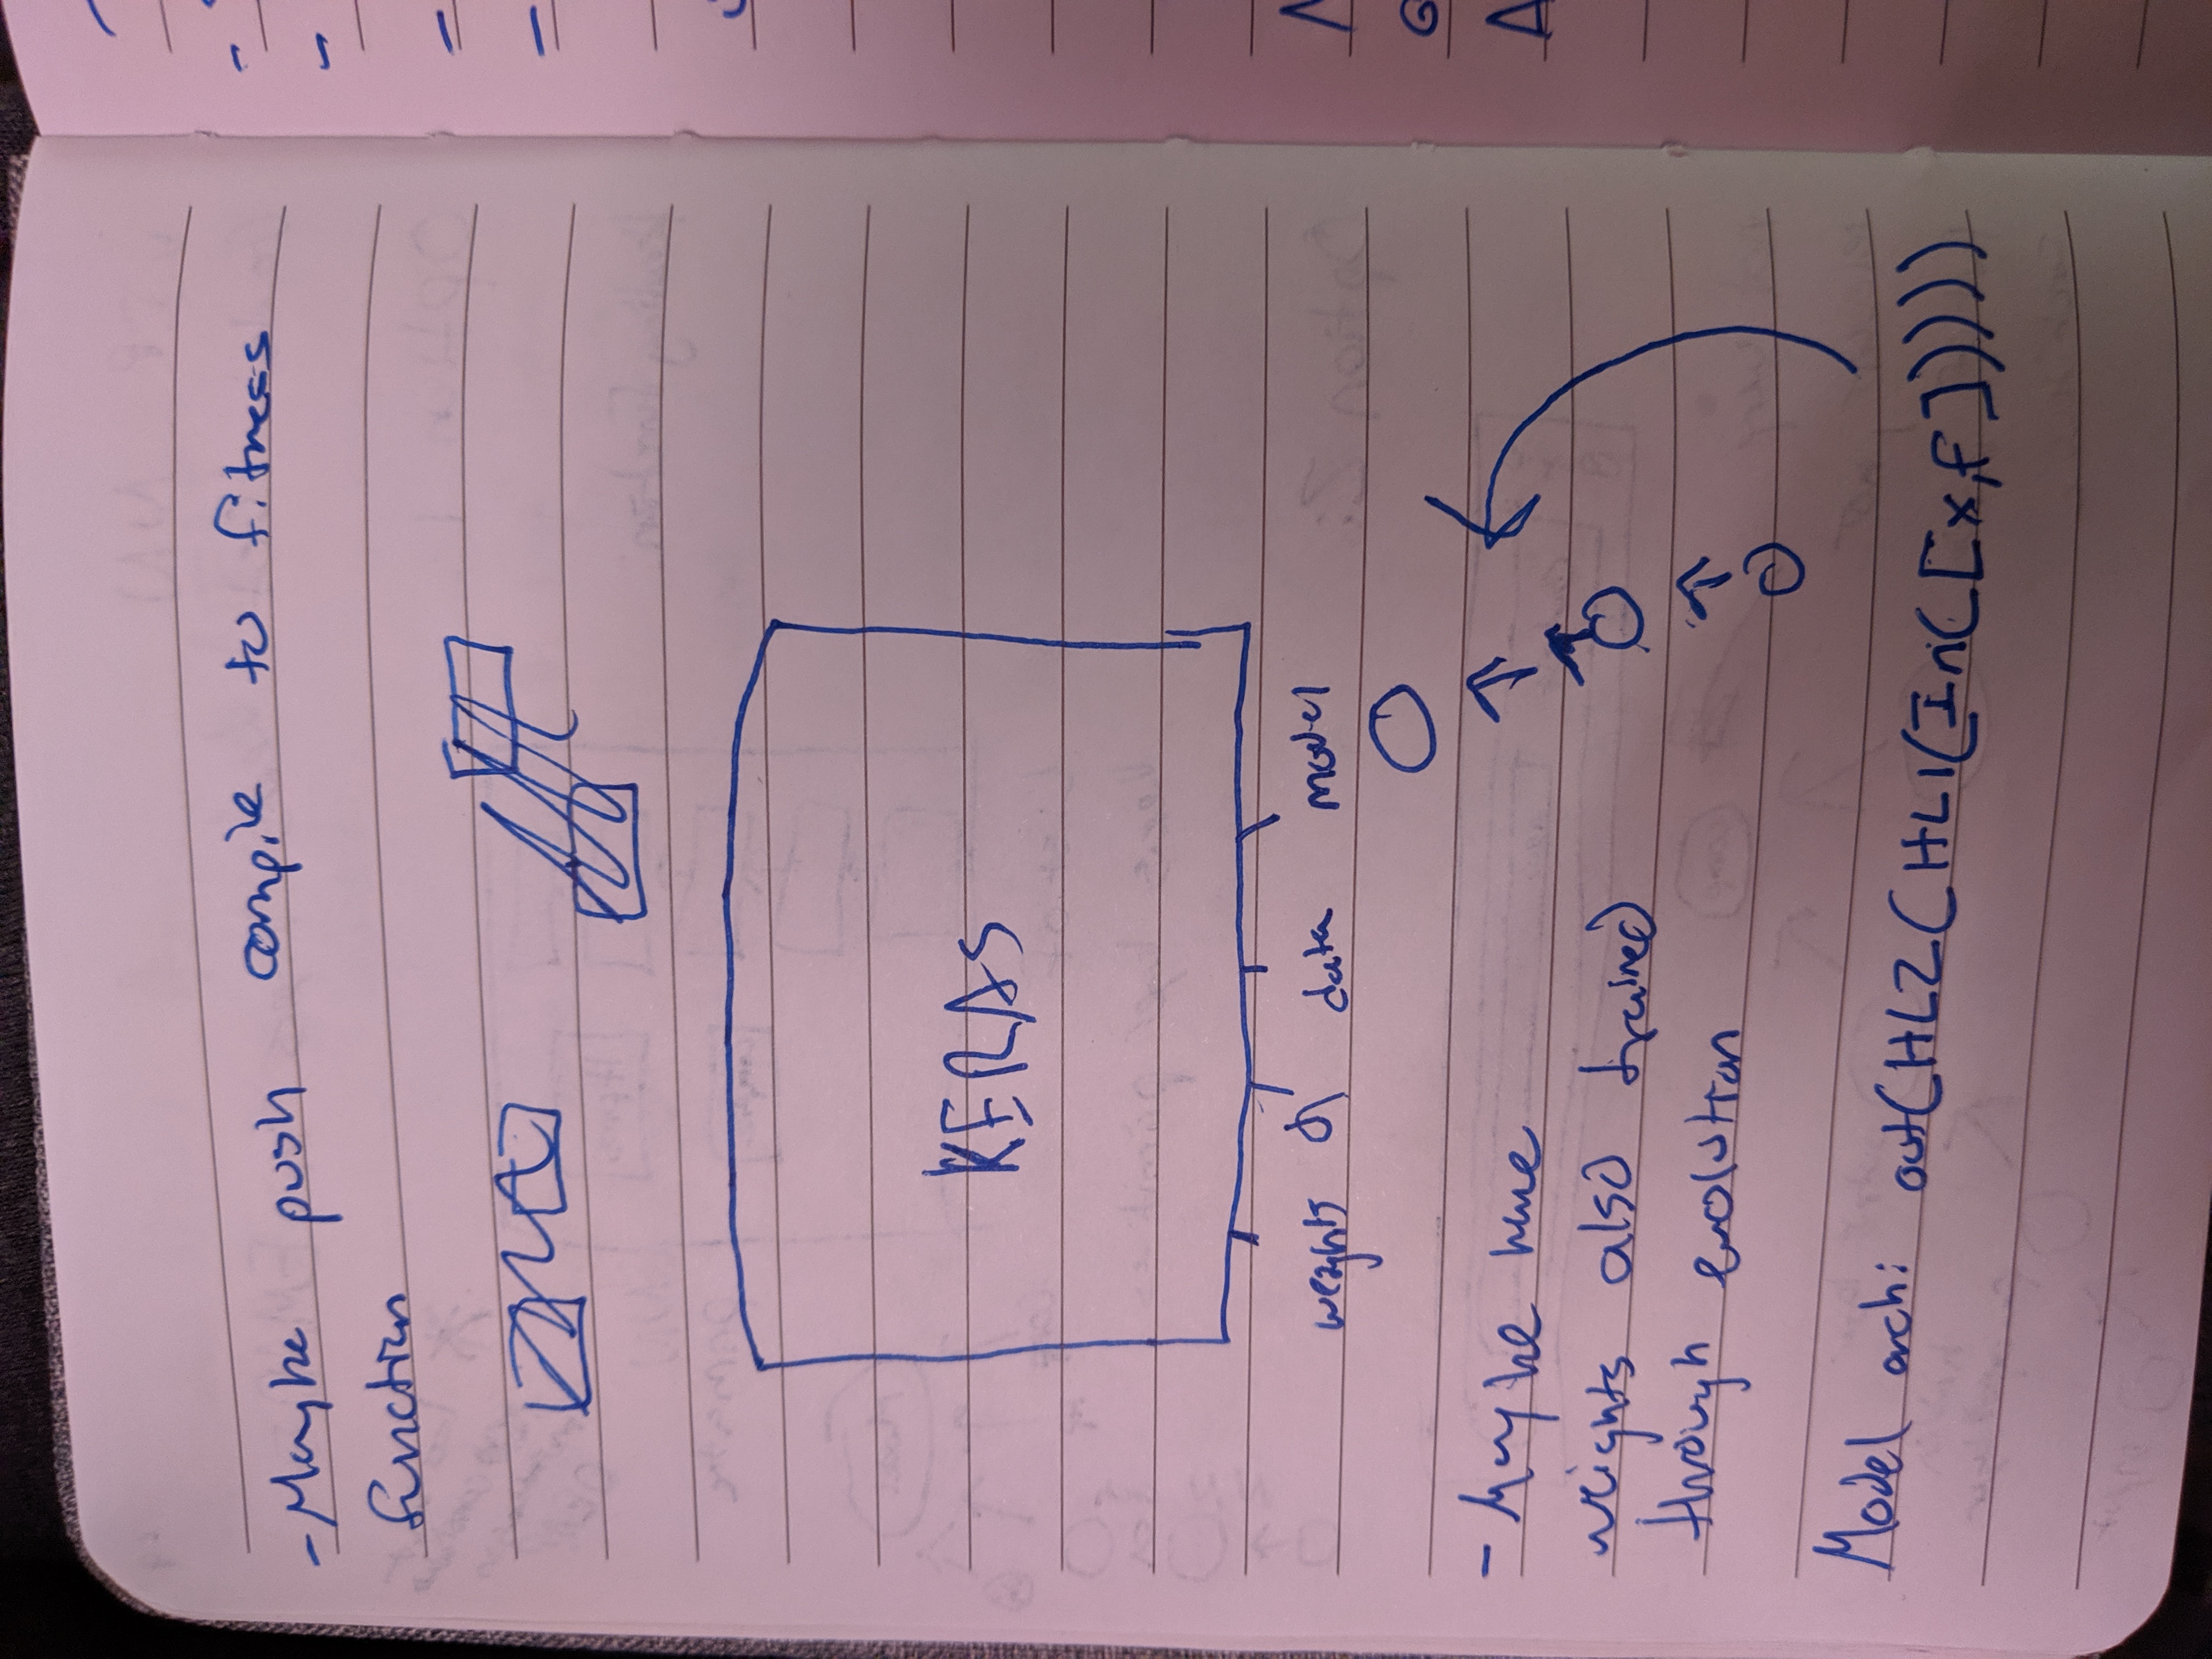 - Maybe push compile to fitness
function
KERAS
weights data model
- Maybe have
weights also trained
through evolution
Model arch: out(HL2(HL1(In([x,f]))))